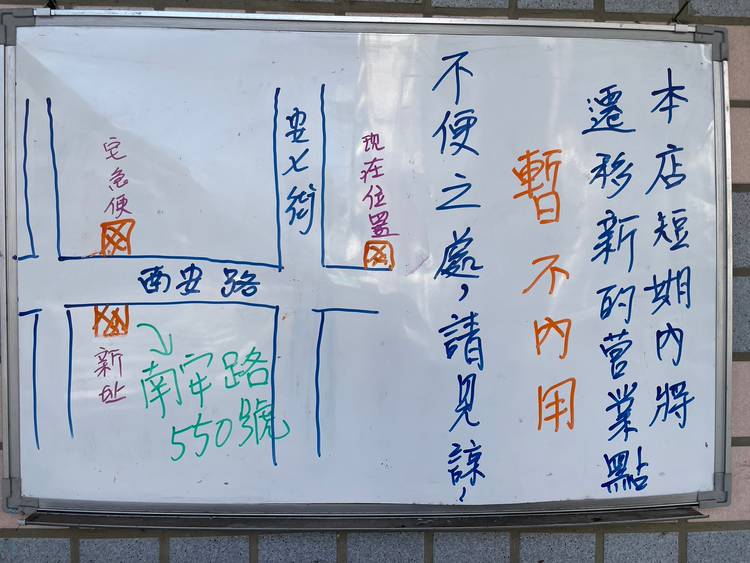 本店短期內將
遷移新的營業點
暫不內用
不便之處，請見諒，
现在位置
安七街
宅急便
西安路
新址
南安路
550號